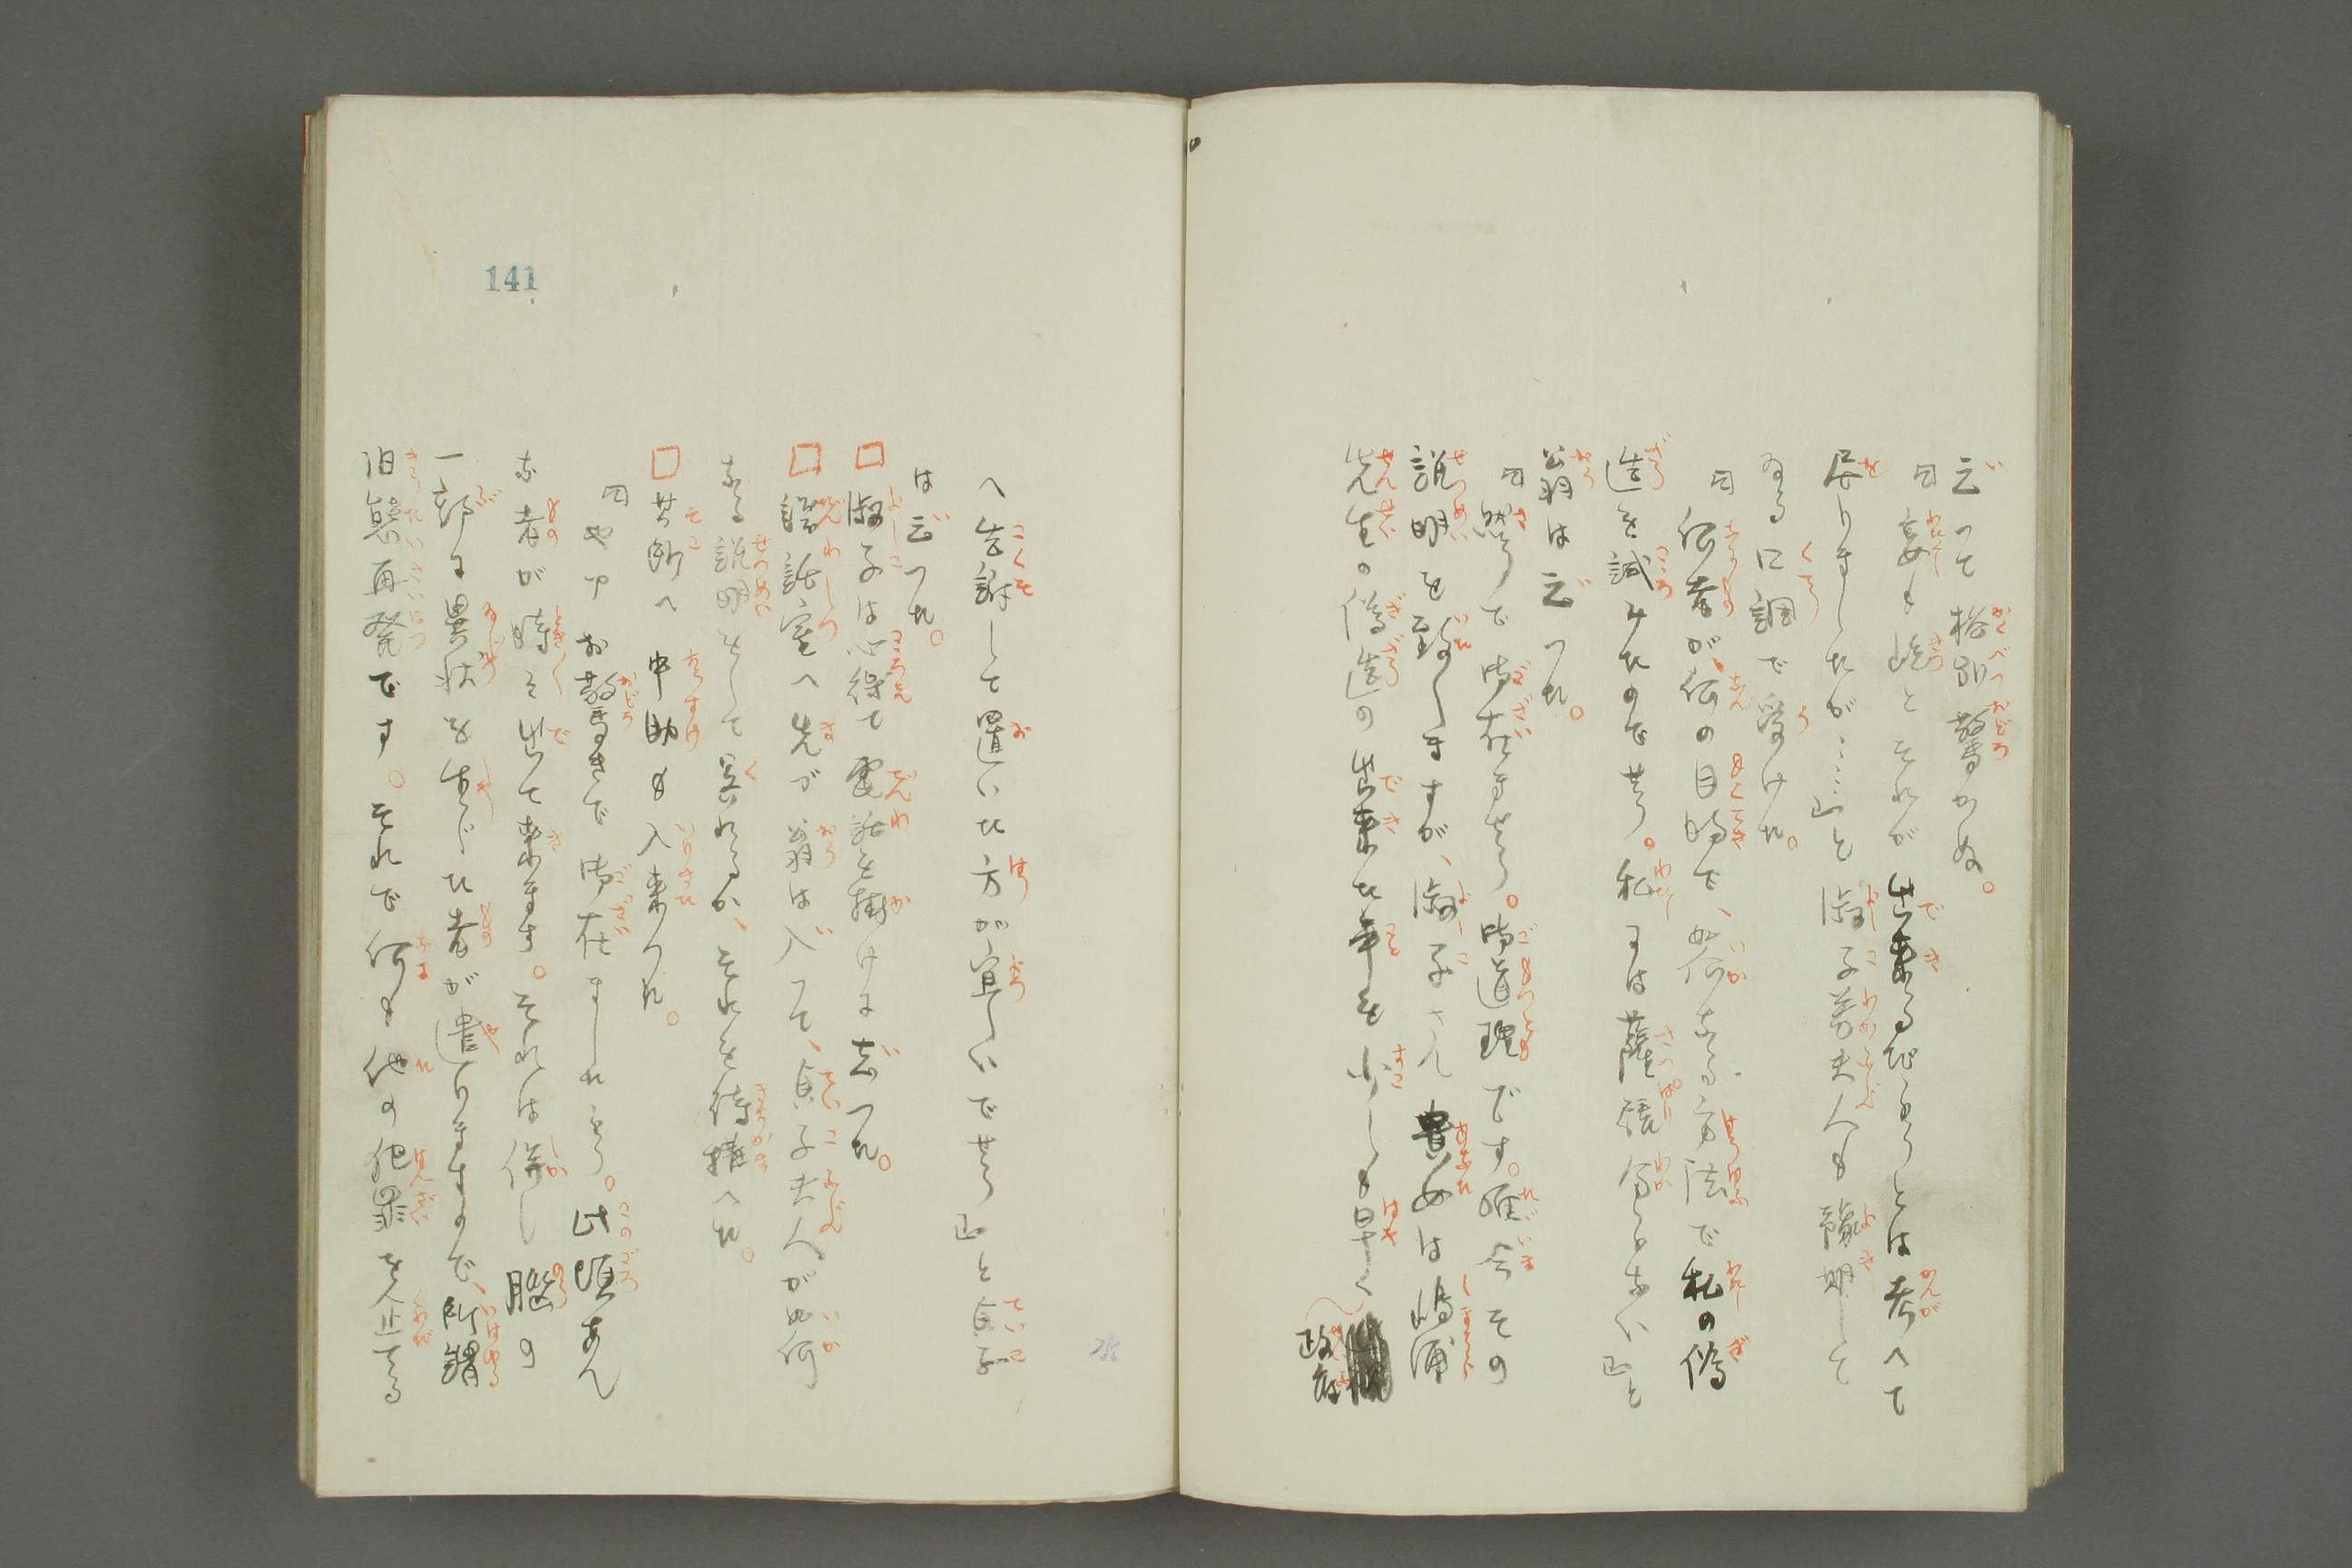 云つて格別驚かぬ。
『妾も屹とそれが出来るだらうとは考へて
居りましたが……』と淑子若夫人も豫期して
ゐる口調で受けた。
『何者が、何の目的で、如何なる方法で私の偽
造を試みたのでせう。私には薩張分らない』と
翁は云つた。
『然うで御在ませう。御道理です。唯今その
説明を致しますが、淑子さん貴女は嶋浦
先生の偽造の出来た事を少しも早く政府
へ告訴して置いた方が宜しいでせう』と貞子
は云つた。
淑子は心得て電話を掛けに去つた。
談話室へ先づ翁は入つて、貞子夫人が如何
なる説明をして呉れるか、それを待構へた。
其所へ中助も入来つた。
『やァお驚きで御在ましたらう。此頃あん
な者が時々出て来ます。それは併し脳の
一部に異状を生じた者が遣りますので、所謂
旧態再発です。それで何も他の犯罪を人止る
141